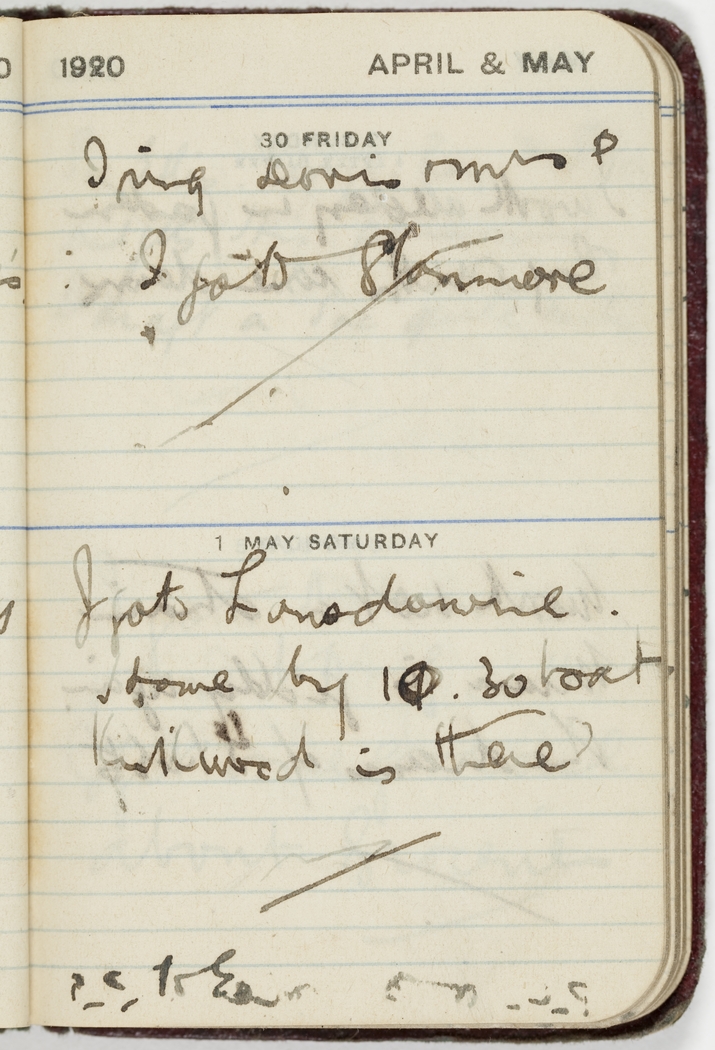 1920 APRIL & MAY
30 FRIDAY
I ring Doris
I go to Stanmore
1 MAY SATURDAY
I go to Lansdowne.
Home by 10.30 boat
Kirkwood is there
to